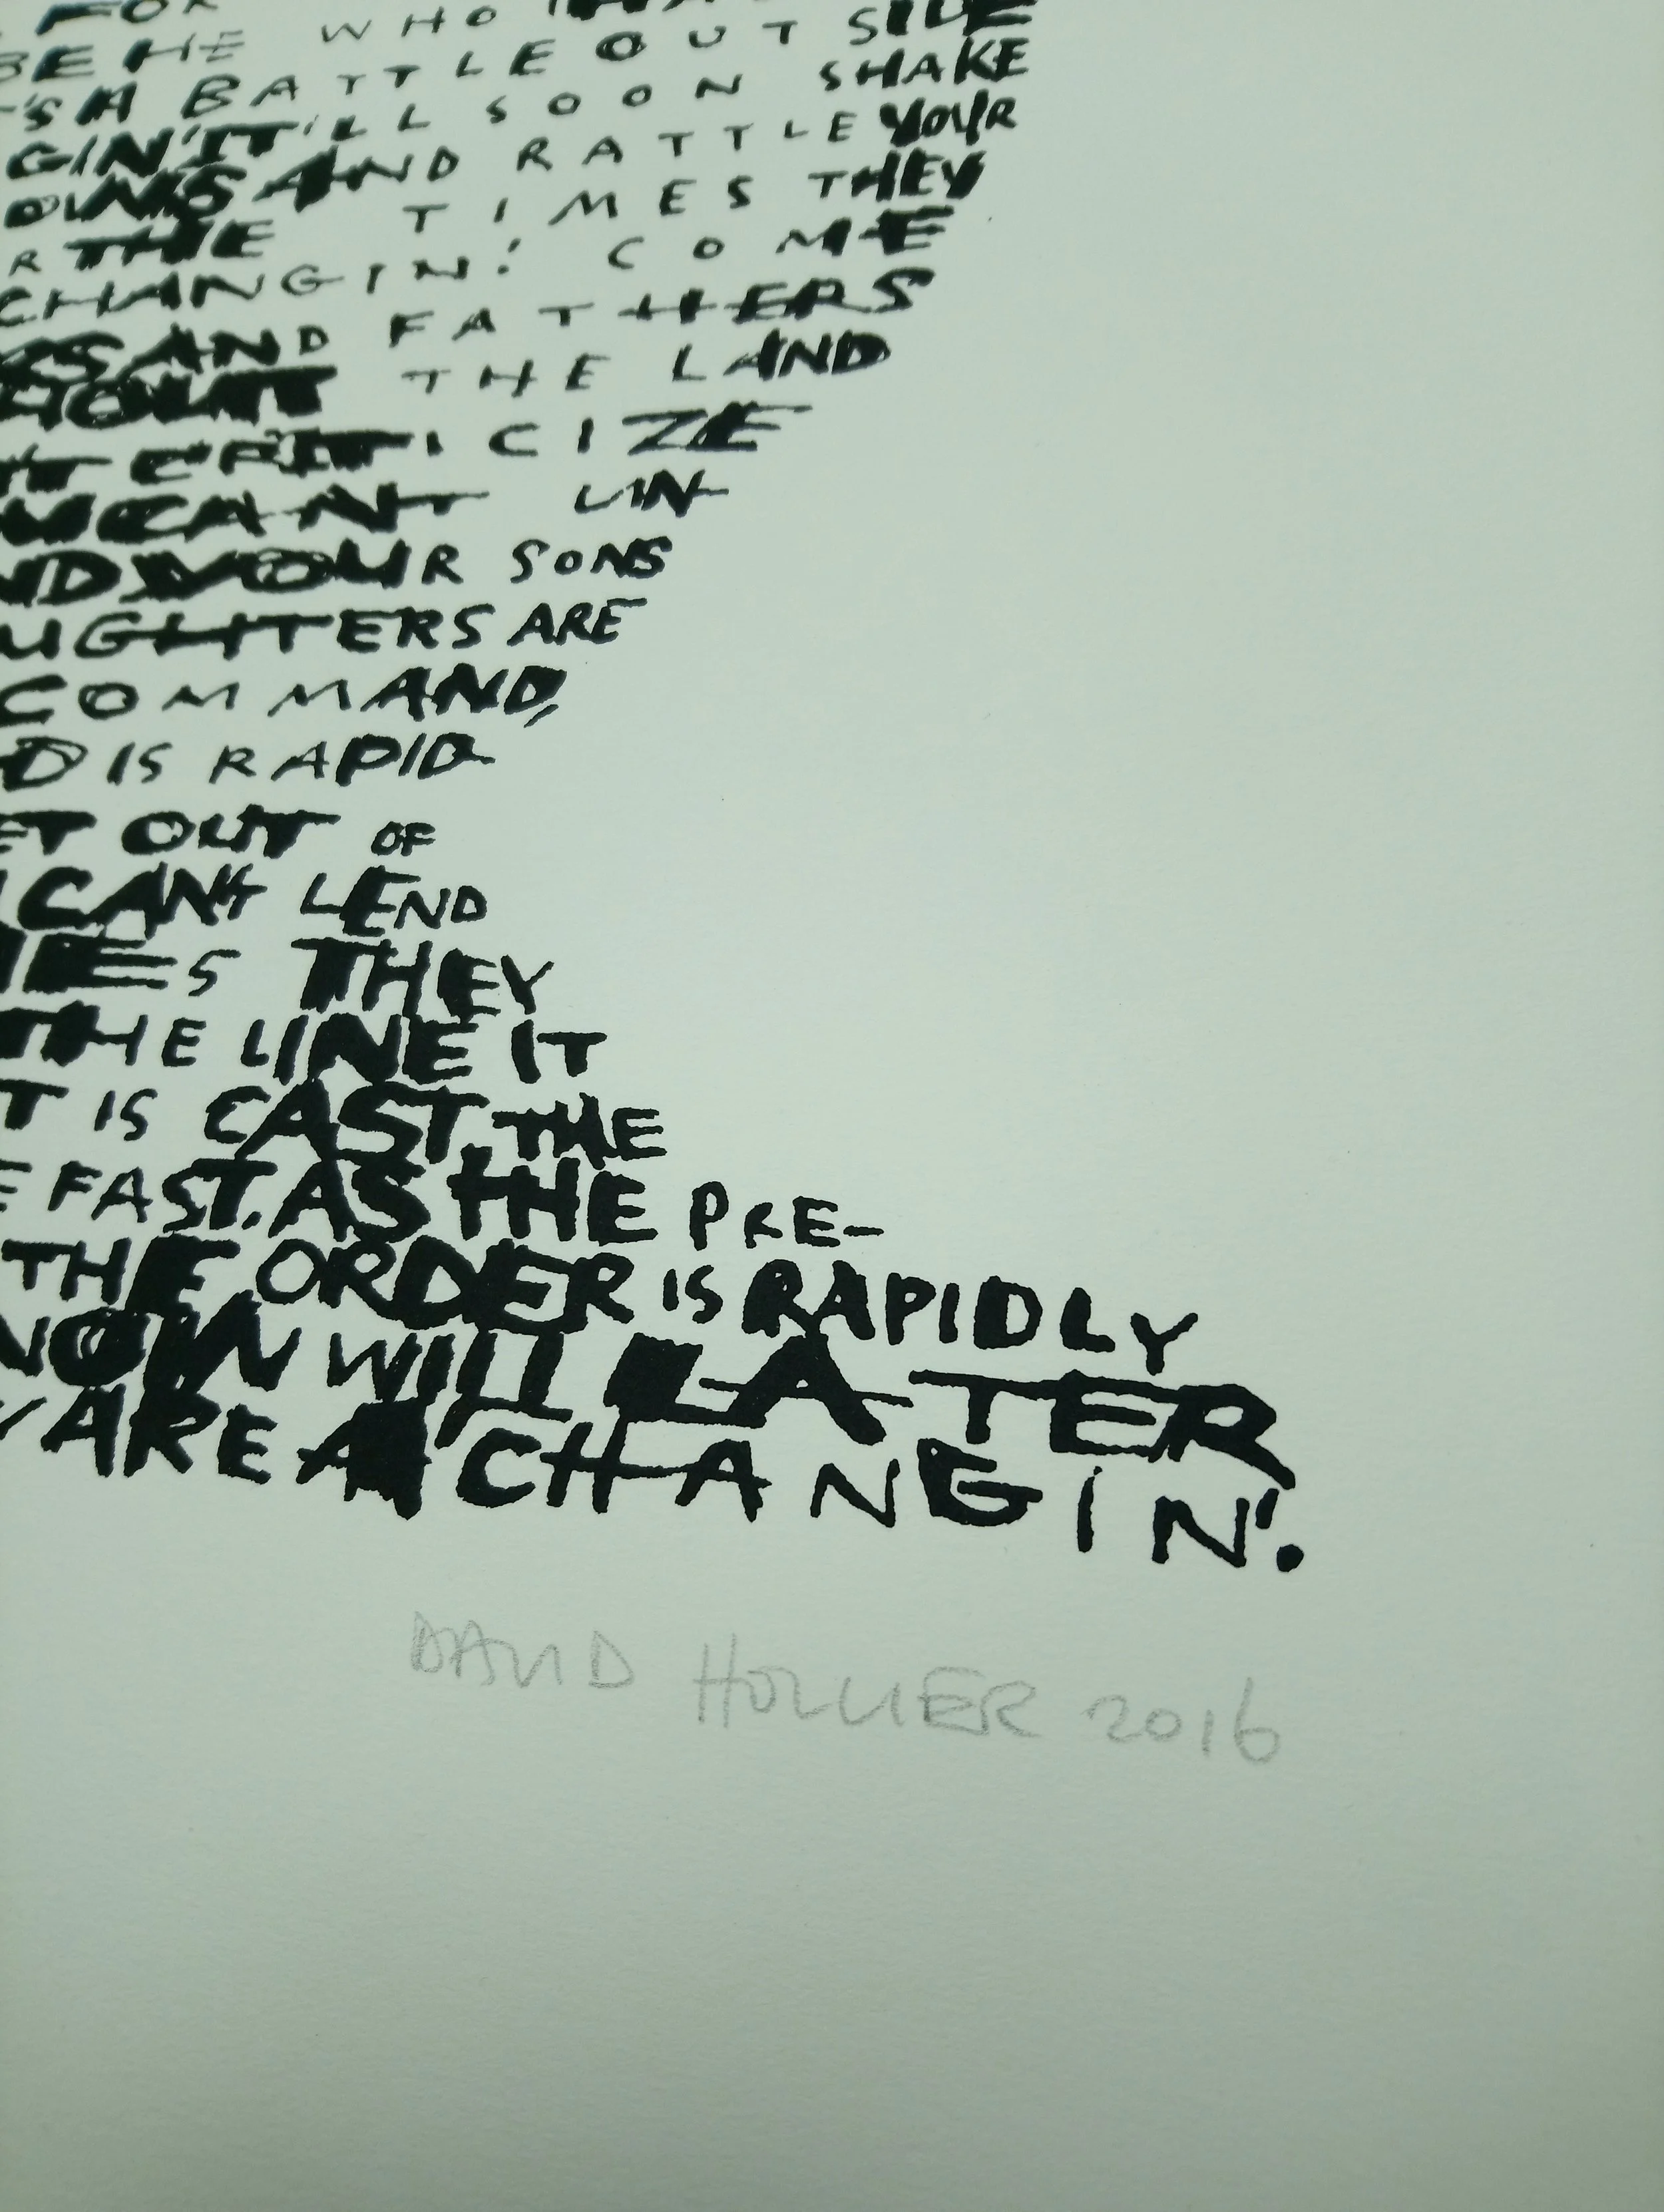 FOR
BE HE WHO THA
'S A BATTLE OUT SIDE
GIN' IT'LL SOON SHAKE
OWS AND RATTLE YOUR
R THE TIMES THEY
CHANGIN'. COME
RS AND FATHERS
HOUT THE LAND
'T CRITICIZE
U CANT UN-
ND YOUR SONS
UGHTERS ARE
COMMAND,
D IS RAPID-
ET OUT OF
CAN'T LEND
MES THEY
THE LINE IT
T IS CAST, THE
E FAST. AS THE PRE-
THE ORDER IS RAPIDLY
NOW WILL LATER
Y ARE A'CHANGIN'.
DAVID HOLLIER 2016